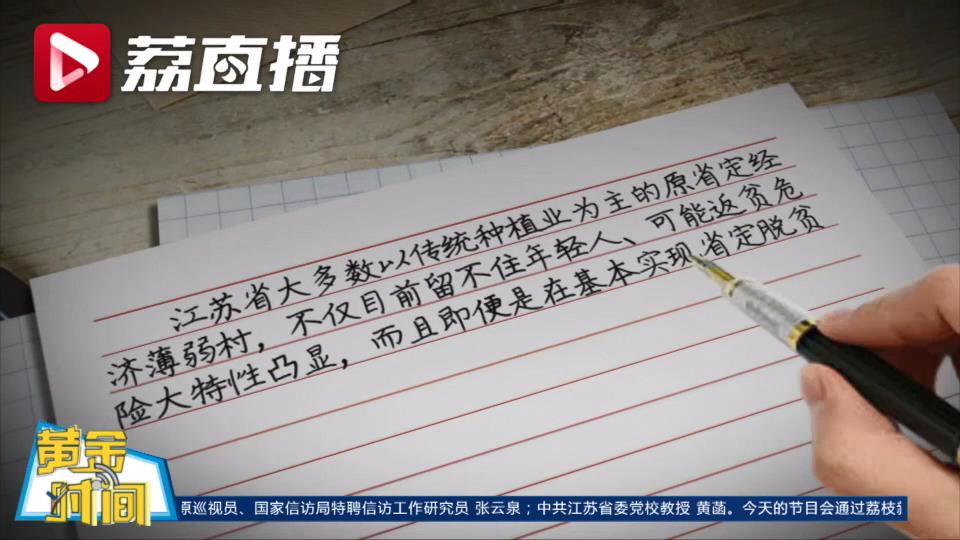 荔直播
江苏省大多数以传统种植业为主的原省定经
济薄弱村，不仅目前留不住年轻人、可能返贫危
险大特性凸显，而且即便是在基本实现省定脱贫
黄金
时间
原巡视员、国家信访局特聘信访工作研究员 张云泉；中共江苏省委党校教授 黄菡。今天的节目会通过荔枝